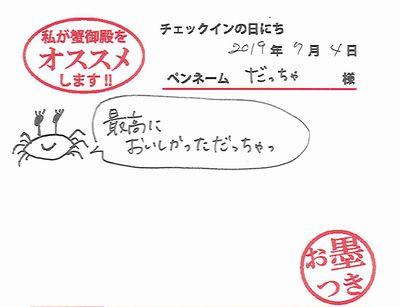 私が蟹御殿を
オススメ
します!!
チェックインの日にち
2019年7月4日
ペンネーム だっちゃ 様
最高に
おいしかっただっちゃっ
お墨
つき